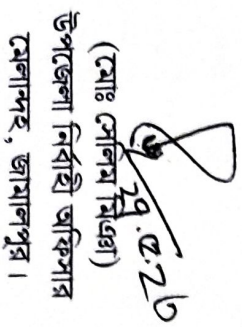 (মোঃ সেলিম মিঞা)
উপজেলা নির্বাহী অফিসার
মেলান্দহ, জামালপুর।